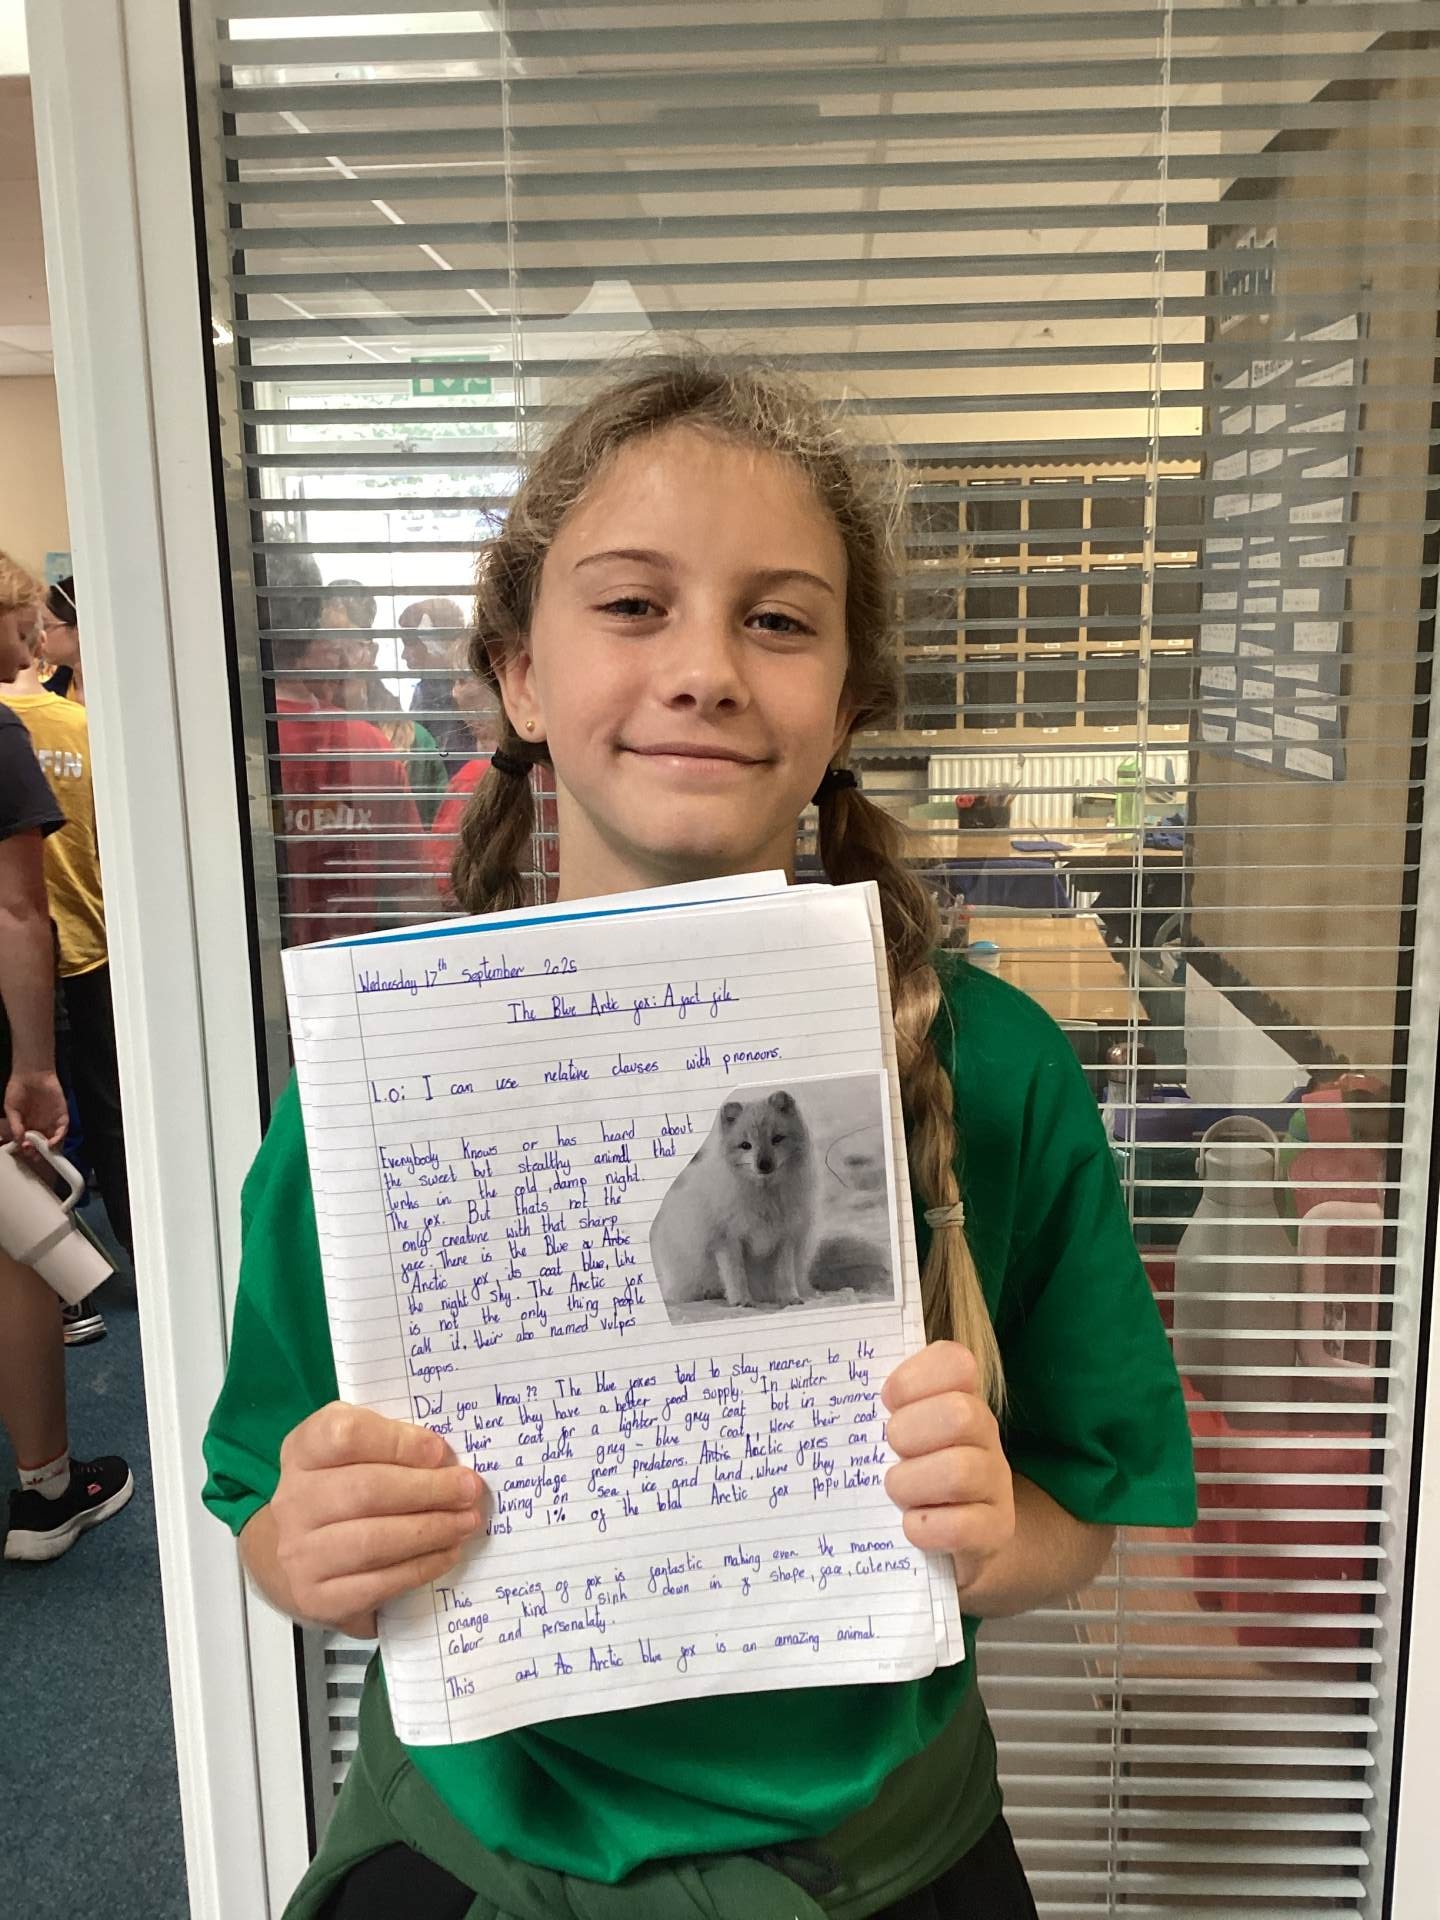 FIN
HOENIX
Wednesday 17th September 2025
The Blue Artic fox: A fact file
L.O: I can use relative clauses with pronouns.
Everybody knows or has heard about
the sweet but stealthy animal that
lurks in the cold, damp night.
The fox. But thats not the
only creature with that sharp
face. There is the Blue Artic
Arctic fox, its coat blue, like
the night sky. The Arctic fox
is not the only thing people
call it, their also named Vulpes
Lagopus.
Did you know?? The blue foxes tend to stay nearer to the
coast were they have a better food supply. In winter they
their coat for a lighter grey coat but in summer
have a dark grey-blue coat, were their coat
camouflage from predators. Artic Arctic foxes can b
living on sea, ice and land, where they make
Just 1% of the total Arctic fox population
This species of fox is fantastic making even the maroon
orange kind sink down in shape, face, cuteness,
colour and personalaty.
This and Ao Arctic blue fox is an amazing animal.